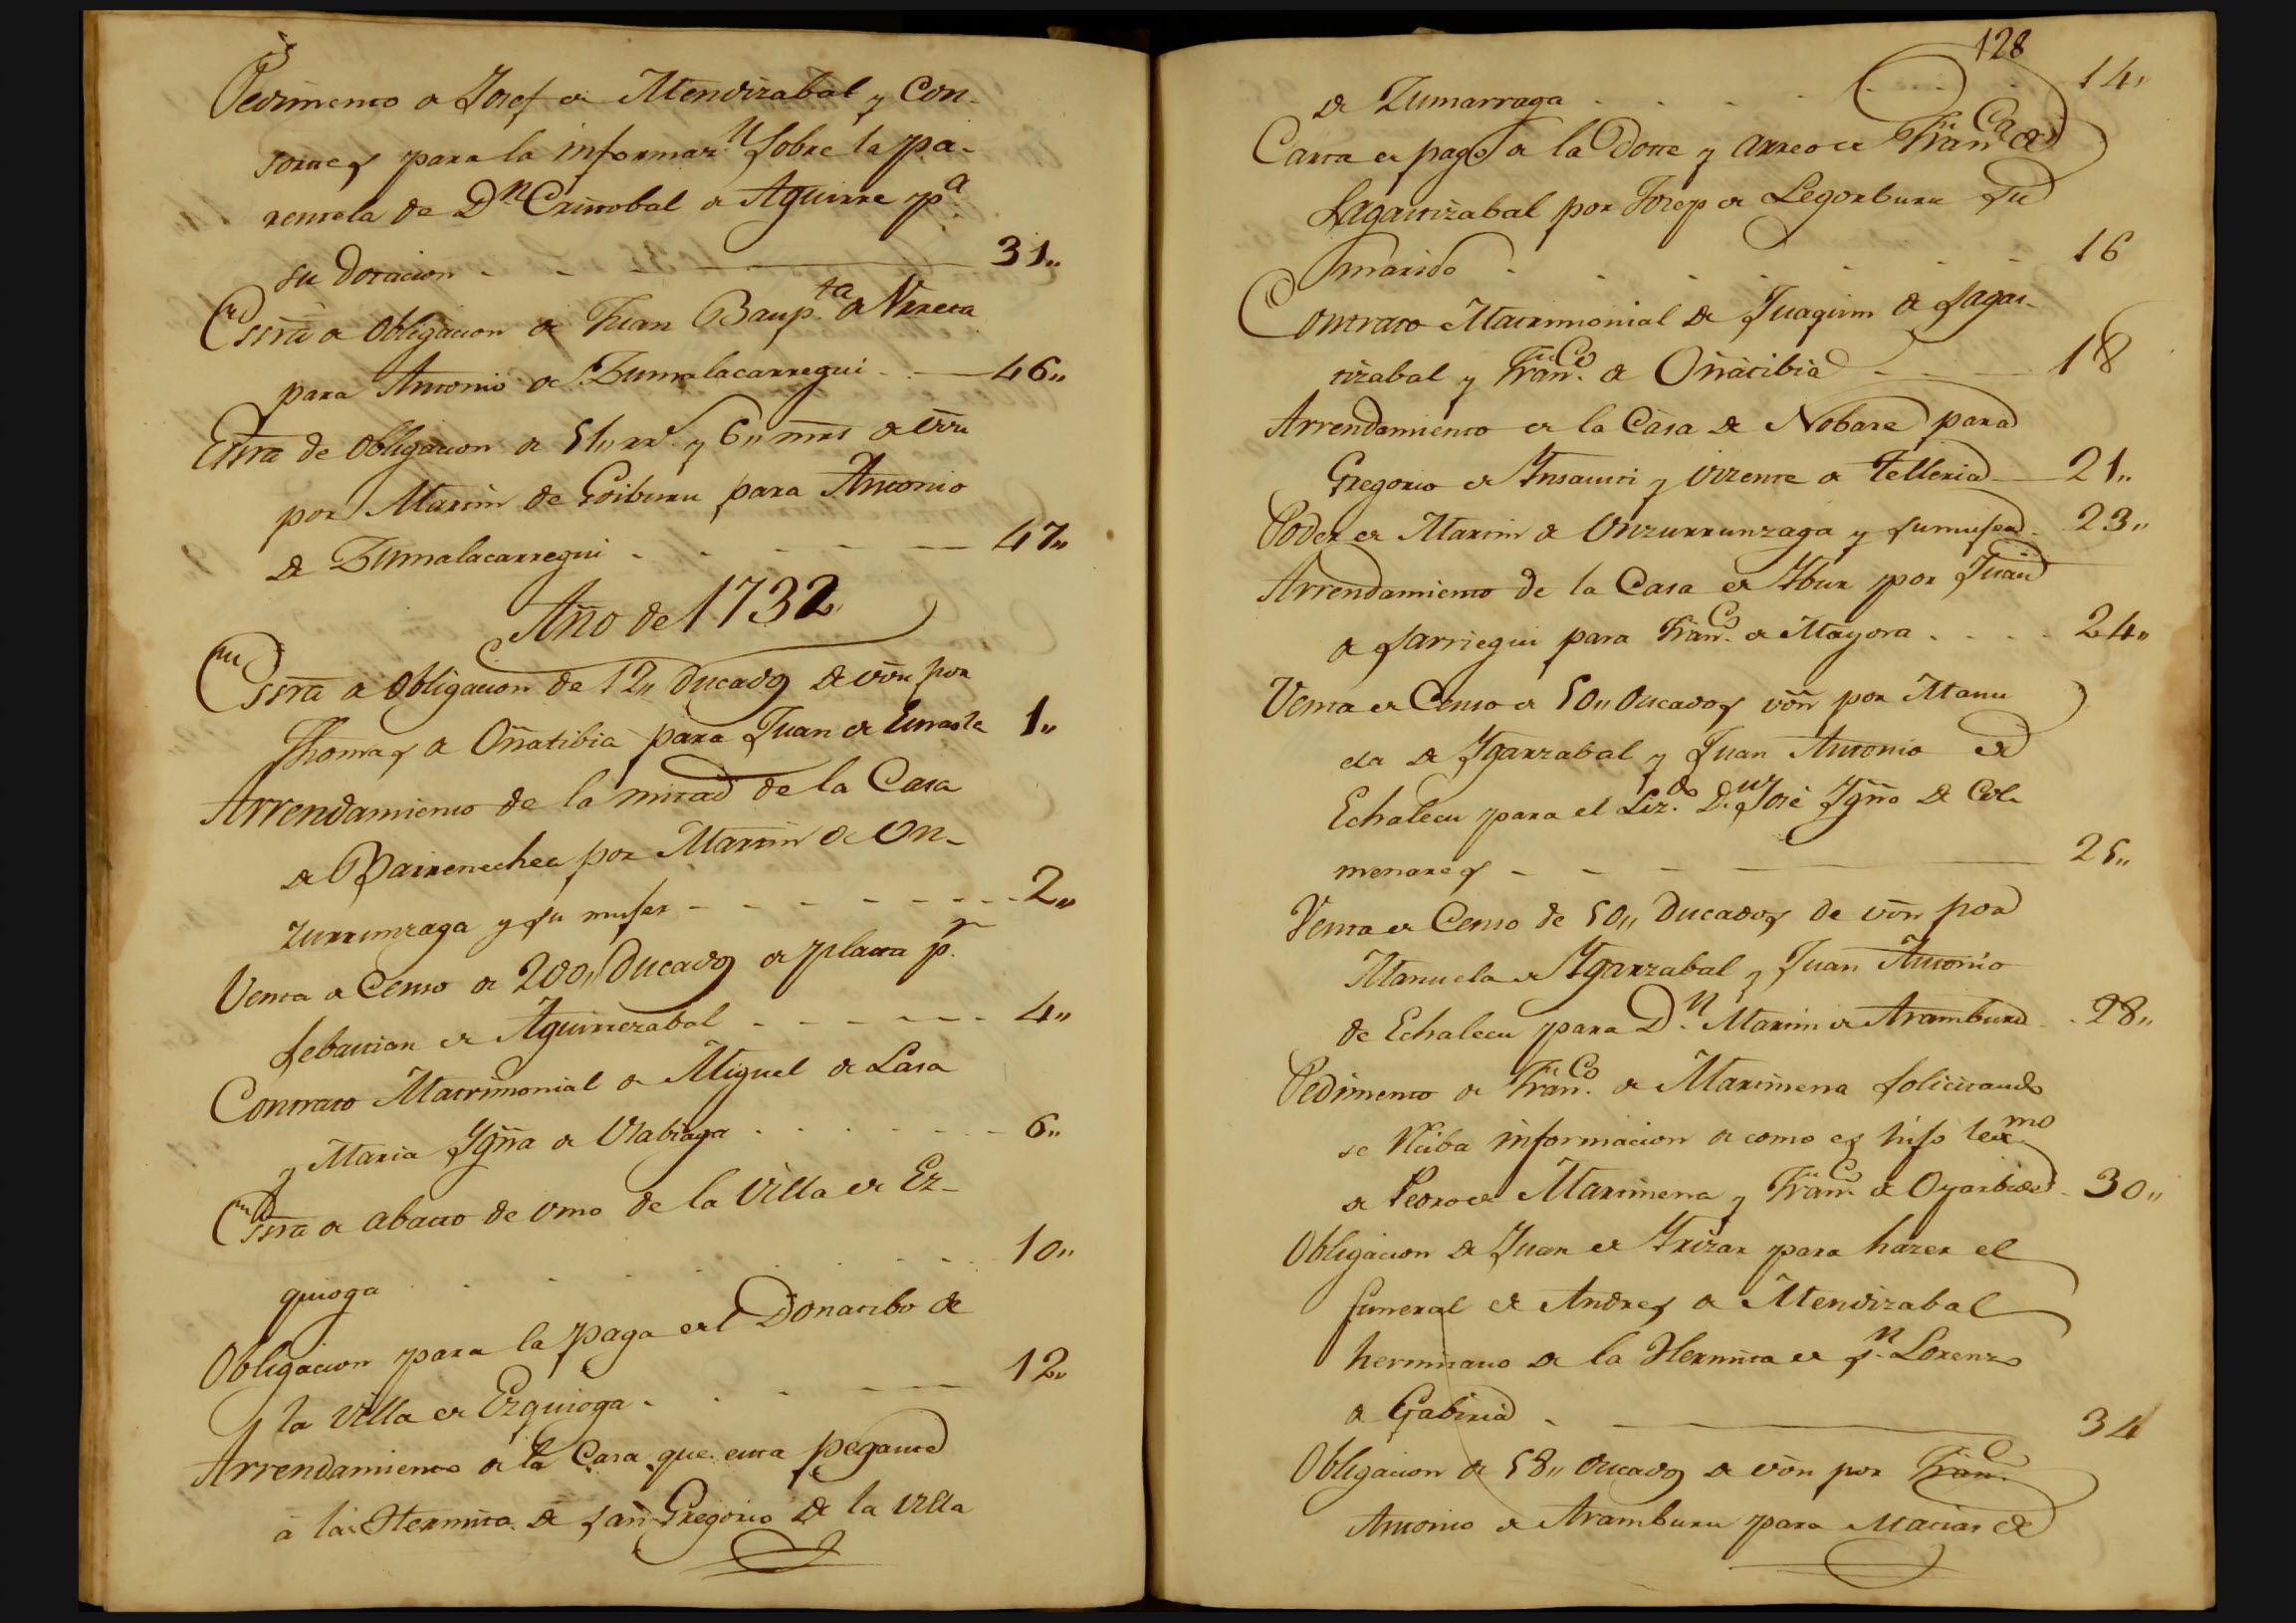 Pedimento de Josef de Mendizabal y Con-
sortes para la informaz.n sobre la pa-
rentela de D.n Cristobal de Aguirre p.a
su Dotacion - - - 31"
Essra de Obligacion de Juan Baup.ta de Vrreta
para Antonio de Zumalacarregui - - 46"
Essra de Obligacion de 51" rr.s y 6" mrs de vn
por Martin de Goiburu para Antonio
de Zumalacarregui - - - - 47"
Año de 1732
Essra de Obligacion de 12" Ducados de von por
Thomas de Oñatibia para Juan de 1"
Arrendamiento de la mitad de la Casa
de Barrenechea por Martin de On-
zurrunzaga y su muger - - - - - - 2"
Venta de Censo de 200" Ducados de plata p.r
Sebastian de Aguirrezabal - - - - - 4"
Contrato Matrimonial de Miguel de Lasa
y Maria Ygña de Vlabiaga . . . . . 6"
Essra de abasto de vino de la Villa de Ez-
quioga . . . . . 10"
Obligacion para la paga del Donatibo de
la Villa de Ezquioga . . . - 12"
Arrendamiento de la Casa que esta pegante
à la Hermita de San Gregorio de la Villa
128
de Zumarraga . . . . . 14"
Carta de pago de la Dote y arreo de Fran.ca de
Sagastizabal por Josep de Legorburu su
marido . . . . . 16
Contrato Matrimonial de Juaquin de Sagas-
tizabal y Fran.ca de Oñatibia - - - 18
Arrendamiento de la Casa de Nobare para
Gregorio de Ynsausti y Vizente de Telleria - 21"
Poder de Martin de Onzurrunzaga y su muger - 23"
Arrendamiento de la Casa de Ybur por Juan
de Sarriegui para Fran.co de Mayora . . . . 24"
Venta de Censo de 50" Ducados von por Manu
ela de Ygarzabal y Juan Antonio de
Echalecu para el Liz.do D.n José Ygño de Col-
menares - - - 25"
Venta de Censo de 50" Ducados de von por
Manuela de Ygarzabal y Juan Antonio
de Echalecu para D.n Martin de Aramburu - 28"
Pedimento de Fran.co de Martinena solicitando
se reciba informacion de como es hijo lex.mo
de Pedro de Martinena y Fran.ca de Oyarbide - 30"
Obligacion de Juan de Yrizar para hazer el
funeral de Andres de Mendizabal
hermitaño de la Hermita de S.n Lorenzo
de Gabiria - - - 34
Obligacion de 58" Ducados de von por Fran.co
Antonio de Aramburu para Matias de